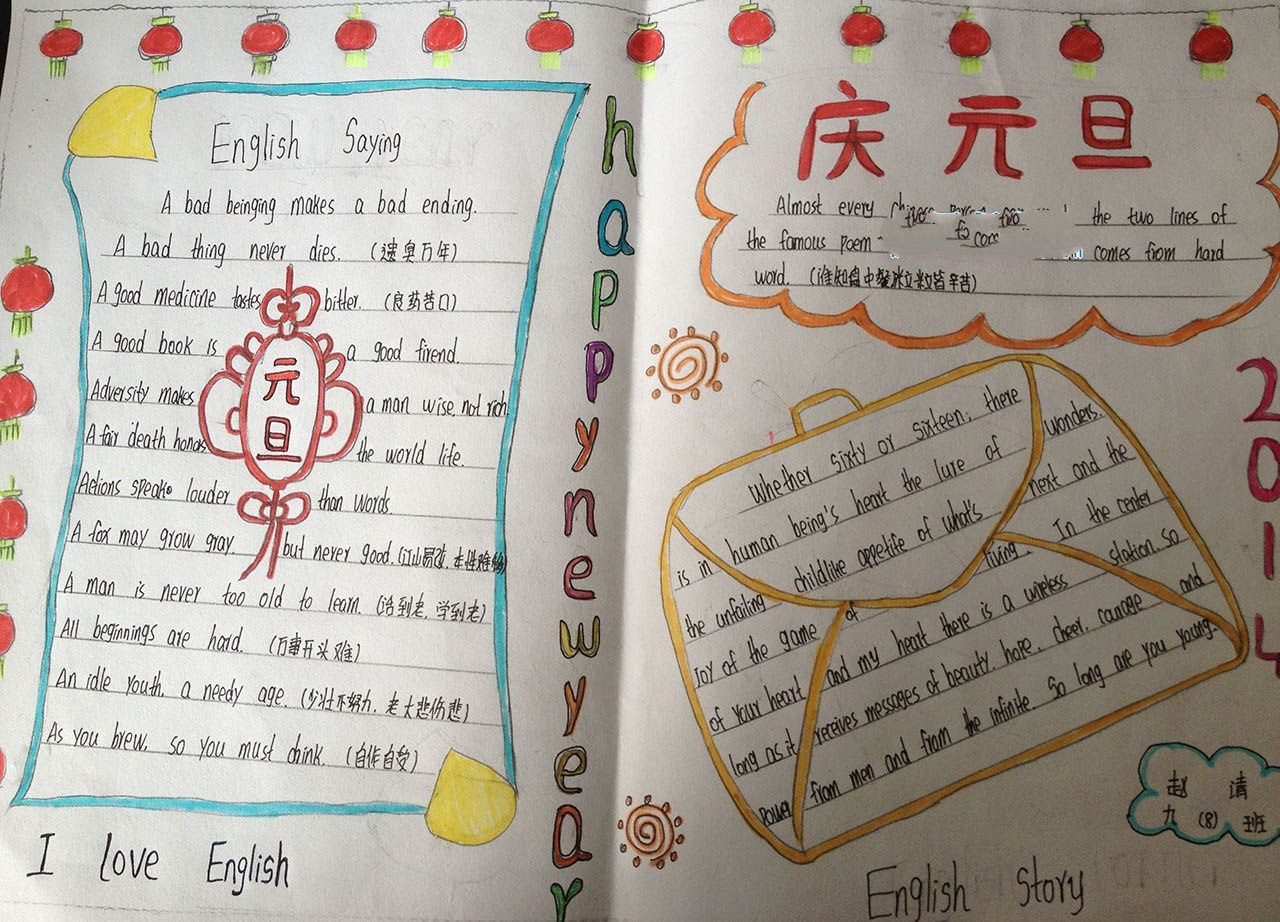 English Saying
A bad beinging makes a bad ending.
A bad thing never dies. (遗臭万年)
A good medicine tastes bitter. (良药苦口)
A good book is a good firend.
Adversity makes a man wise, not rich
A fair death honors the world life.
Actions speak louder than words
A fox may grow gray, but never good. (江山易改, 本性难移)
A man is never too old to learn. (活到老, 学到老)
All beginnings are hard. (万事开头难)
An idle youth, a needy age. (少壮不努力, 老大悲伤悲)
As you brew, so you must drink. (自作自受)
元旦
I love English
happy new year
庆元旦
Almost every the two lines of
the famous poem comes from hard
word. (谁知盘中餐 粒粒皆辛苦)
2014
Whether sixty or sixteen, there
is in human being's heart the lure of wonders.
the unfailing childlike appetite of what's next and the
Joy of the game of living. In the center
of your heart and my heart there is a wireless station. So
long as it receives messages of beauty, hope, cheer, courage and
power from men and from the infinite. So long are you young.
English Story
赵清
九(8)班